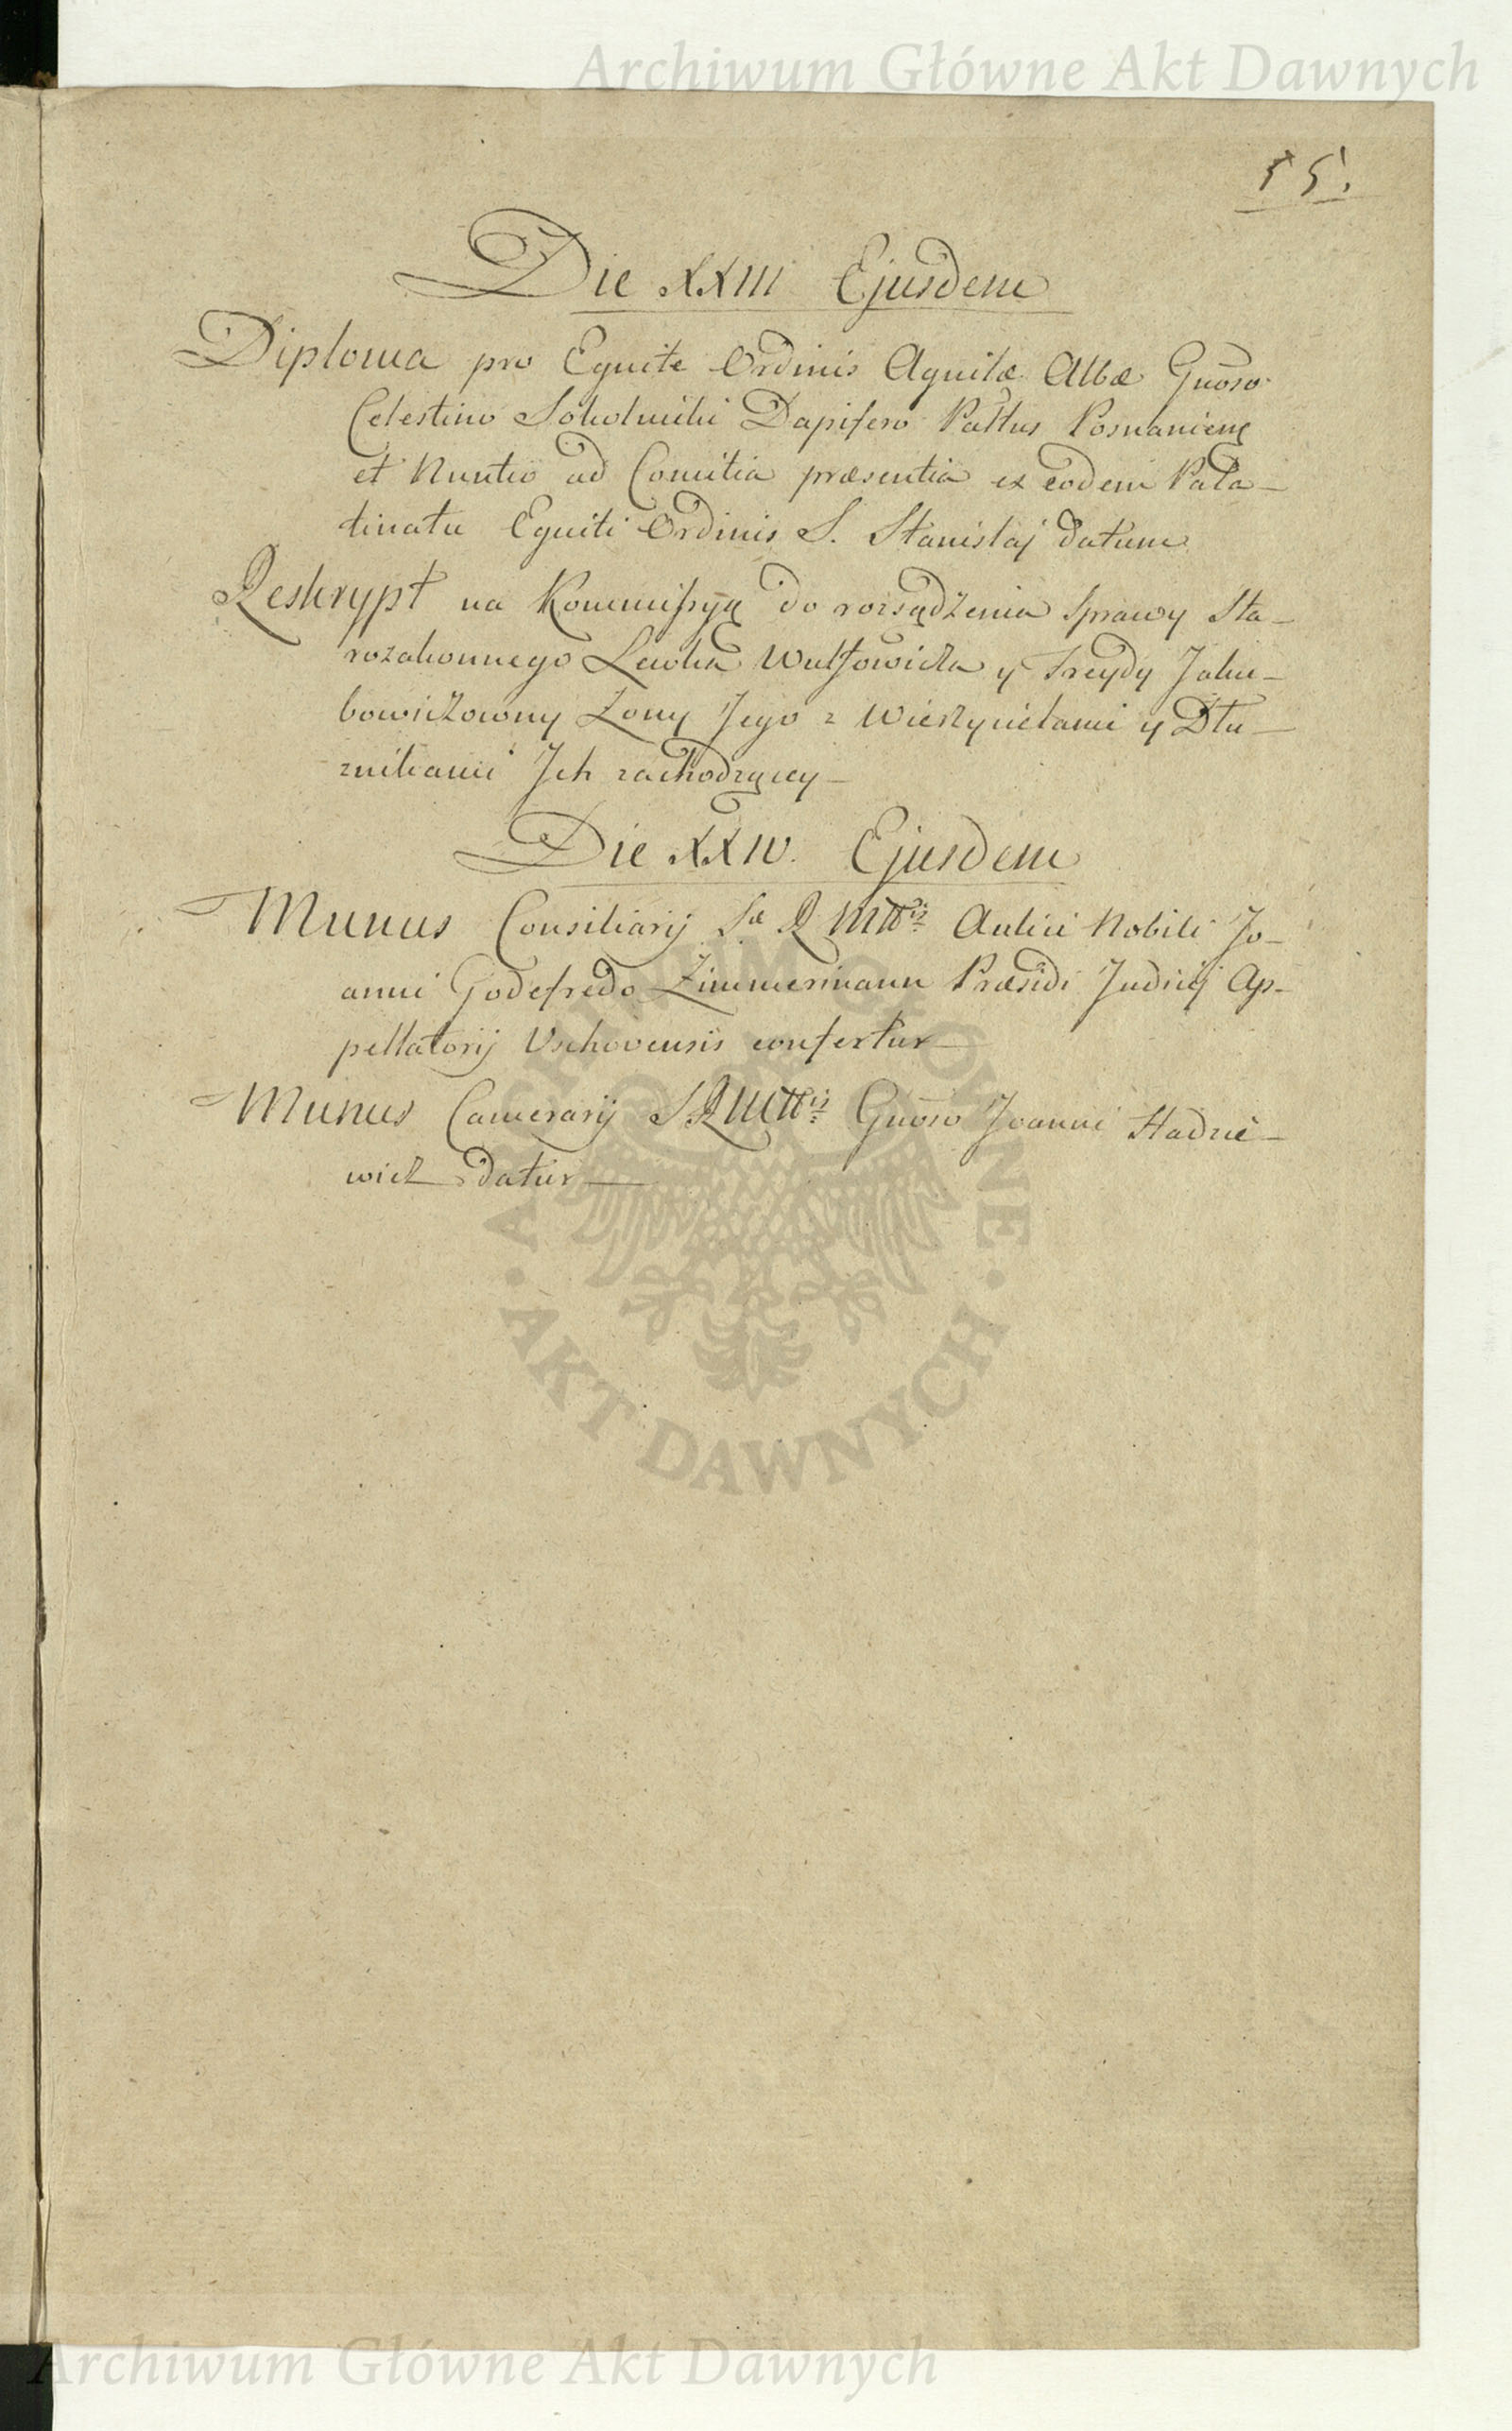 Archiwum Główne Akt Dawnych
15.
Die XXIII Ejusdem
Diploma pro Equite Ordinis Aquilæ Albæ Gnōso
Celestino Sokolnicki Dapifero Pallus Posnanien̄
et Nuntio ad Comitia præsentia ex eodem Pala-
tinatu Equiti Ordinis S. Stanislaj datum
Reskrypt na Kommissyą do rozsądzenia Sprawy Sta-
rozakonnego Lewka Wulfowicza y Freydy Jaku-
bowiczowny Zony Jego z Wierzycielami y Dłu-
znikami Jch zachodzącey
Die XXIV. Ejusdem
Munus Consiliarij Sæ R Mttis Aulici Nobili Jo-
anni Godefredo Zimmermann Præsidi Judicij Ap-
pellatorij Vschovensis confertur
Munus Camerarij S.R.Mttis Gnōso Joanni Hadzie-
wicz datur
ARCHIWUM GŁÓWNE
AKT DAWNYCH
Archiwum Główne Akt Dawnych